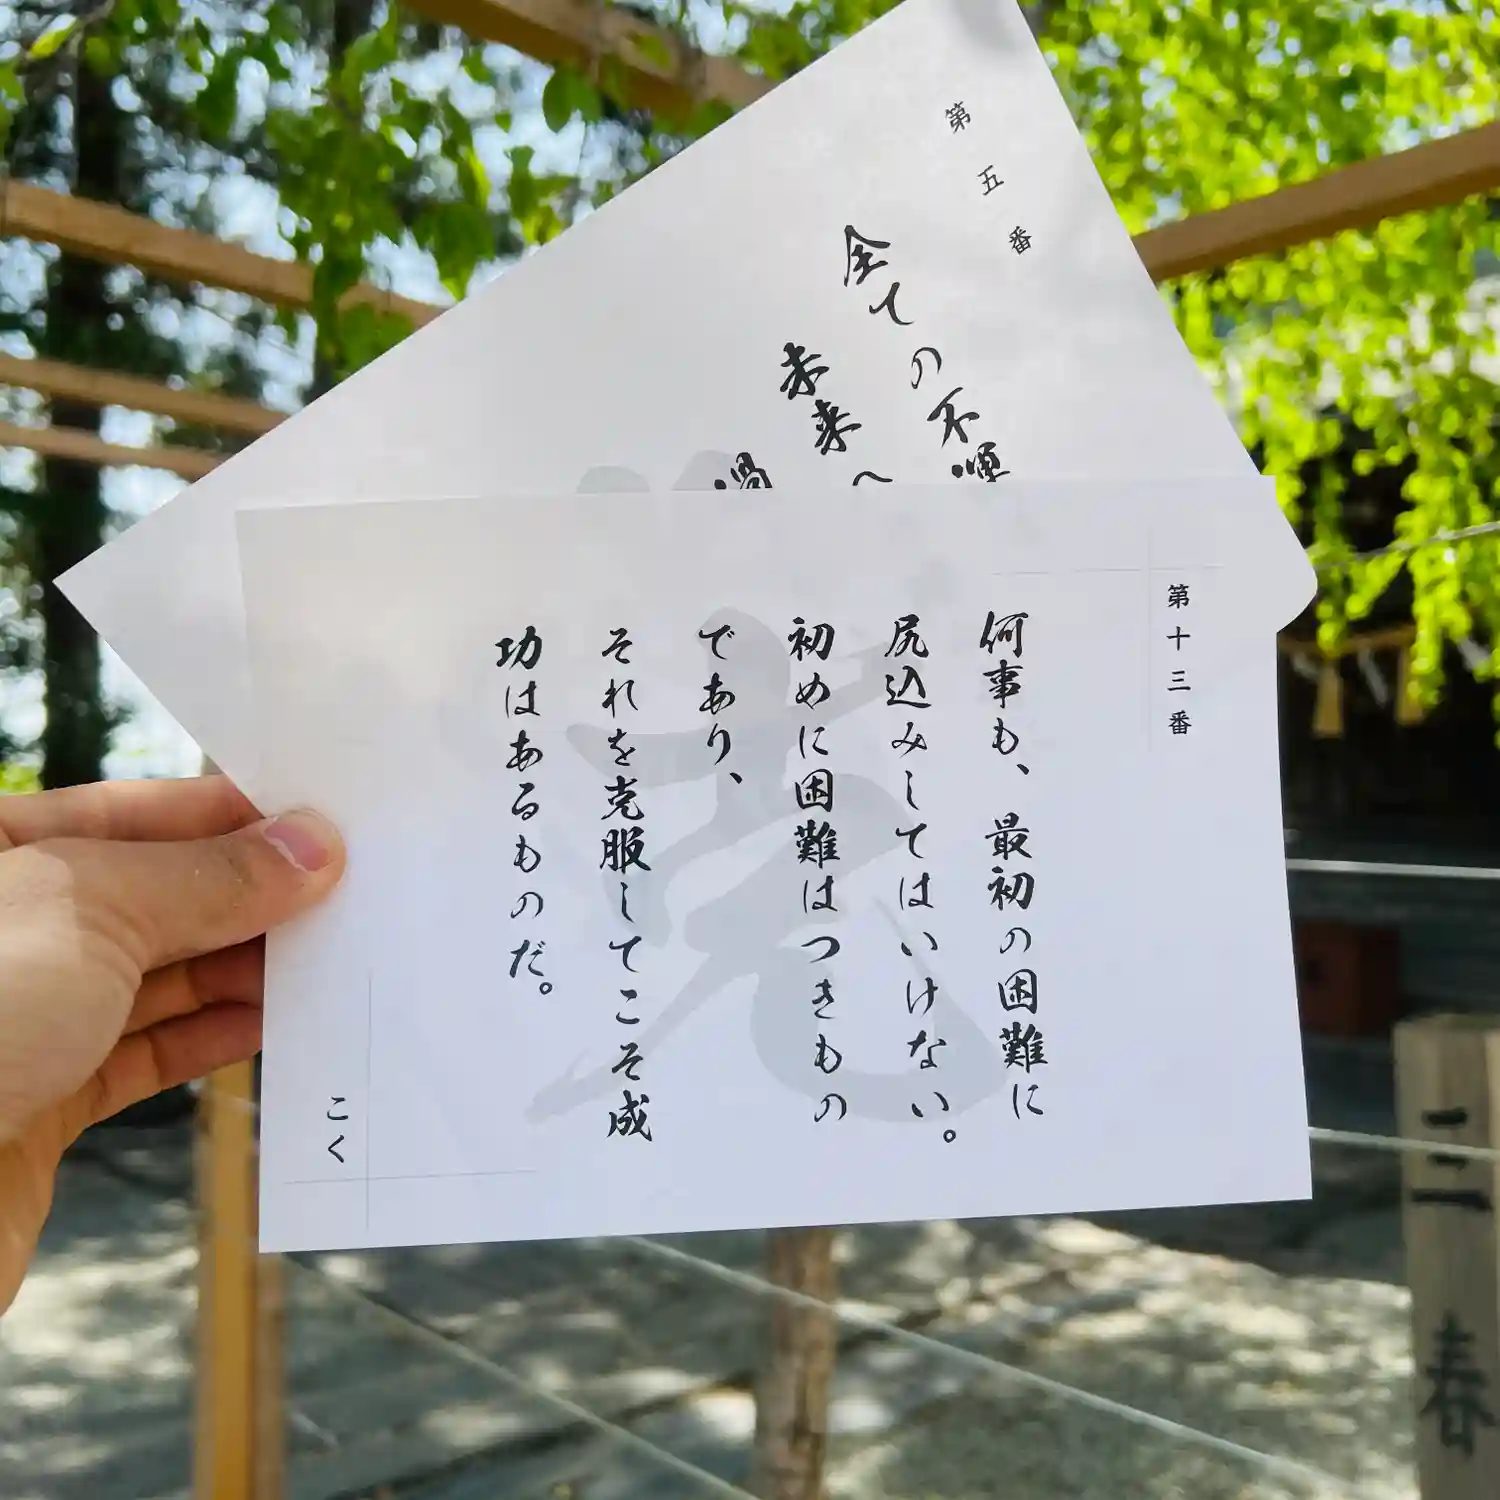 第五番
全ての不運
未来へ
過
第十三番
何事も、最初の困難に
尻込みしてはいけない。
初めに困難はつきもの
であり、
それを克服してこそ成
功はあるものだ。
こく
克
春